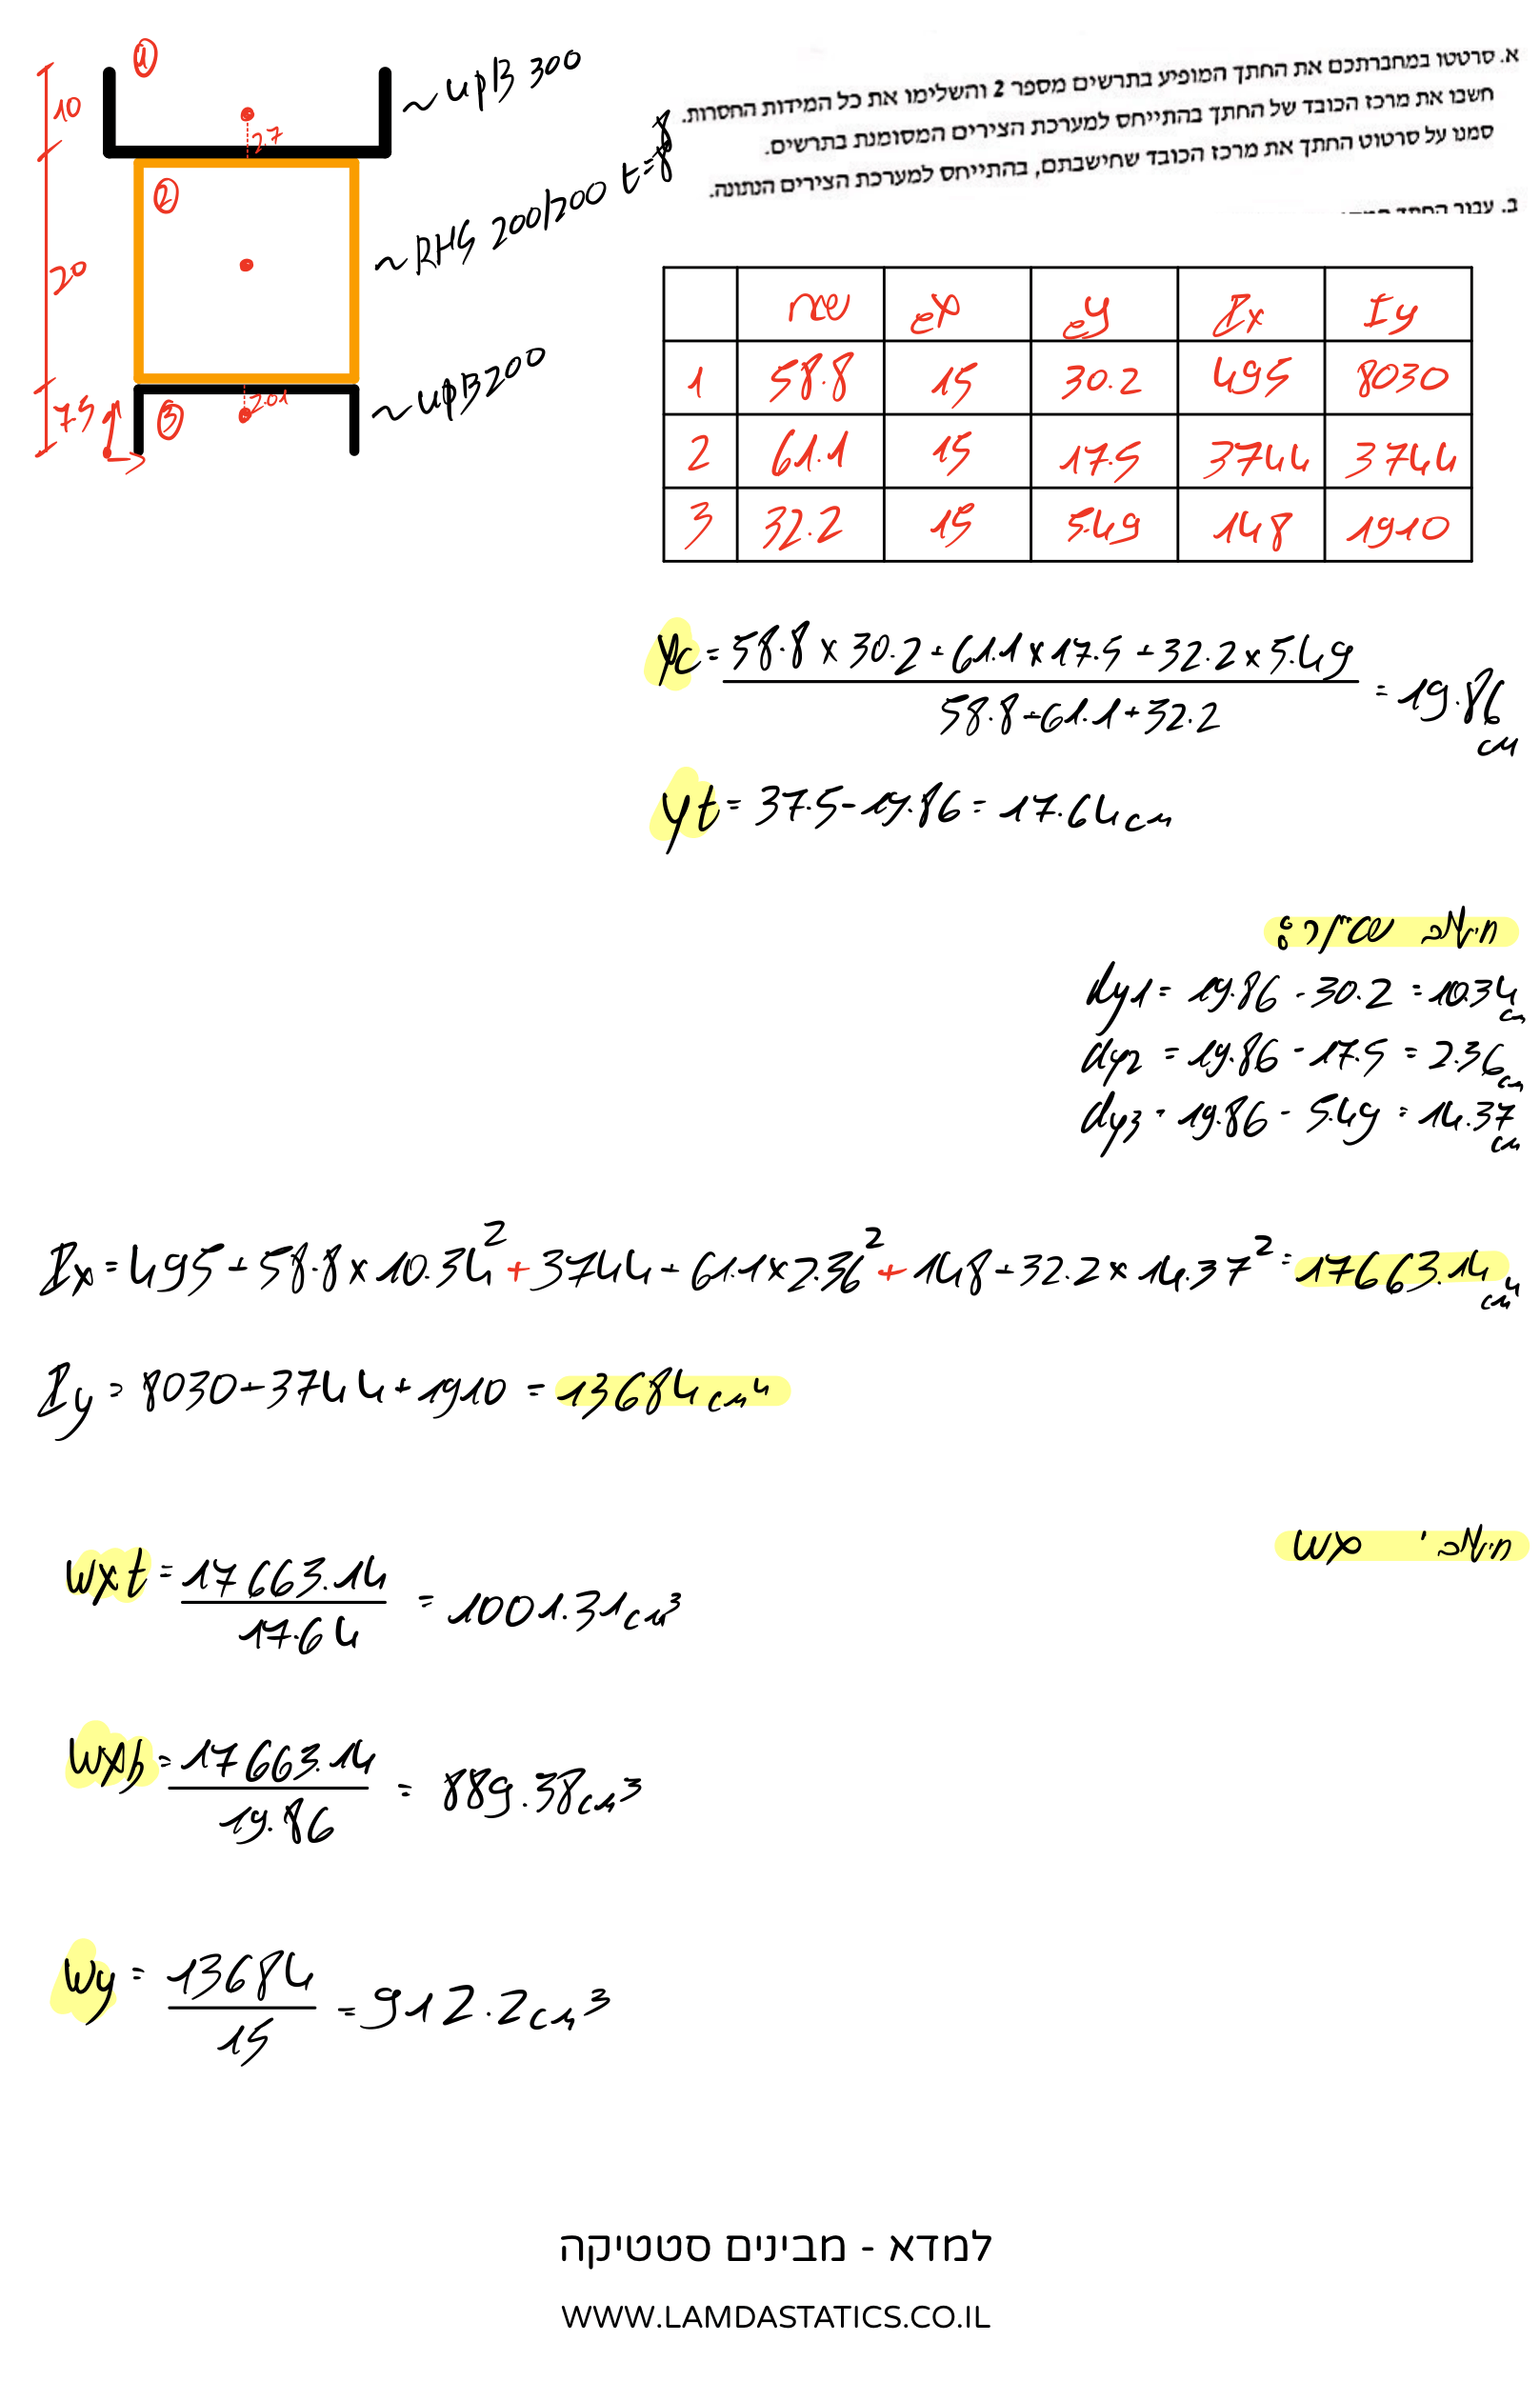 א. סרטטו במחברתכם את החתך המופיע בתרשים מספר 2 והשלימו את כל המידות החסרות.
חשבו את מרכז הכובד של החתך בהתייחס למערכת הצירים המסומנת בתרשים.
סמנו על סרטוט החתך את מרכז הכובד שחישבתם, בהתייחס למערכת הצירים הנתונה.
ב. עבור החתך
1
10
2.7
~UPB 300
2
20
~RHS 200/200 t=8
3
7.5
2.01
~UPB200
שטח ex ey Ix Iy
1 58.8 15 30.2 495 8030
2 61.1 15 17.5 3744 3744
3 32.2 15 5.49 148 1910
yc = 58.8 x 30.2 + 61.1 x 17.5 + 32.2 x 5.49
58.8 + 61.1 + 32.2
= 19.86 cm
yt = 37.5 - 19.86 = 17.64 cm
חישוב שטיינר:
dy1 = 19.86 - 30.2 = 10.34 cm
dy2 = 19.86 - 17.5 = 2.36 cm
dy3 = 19.86 - 5.49 = 14.37 cm
Ix = 495 + 58.8 x 10.34² + 3744 + 61.1 x 2.36² + 148 + 32.2 x 14.37² = 17663.14 cm⁴
Iy = 8030 + 3744 + 1910 = 13684 cm⁴
חישובי Wx
Wxt = 17663.14
17.64
= 1001.31 cm³
Wxb = 17663.14
19.86
= 889.38 cm³
Wy = 13684
15
= 912.2 cm³
למדא - מבינים סטטיקה
WWW.LAMDASTATICS.CO.IL